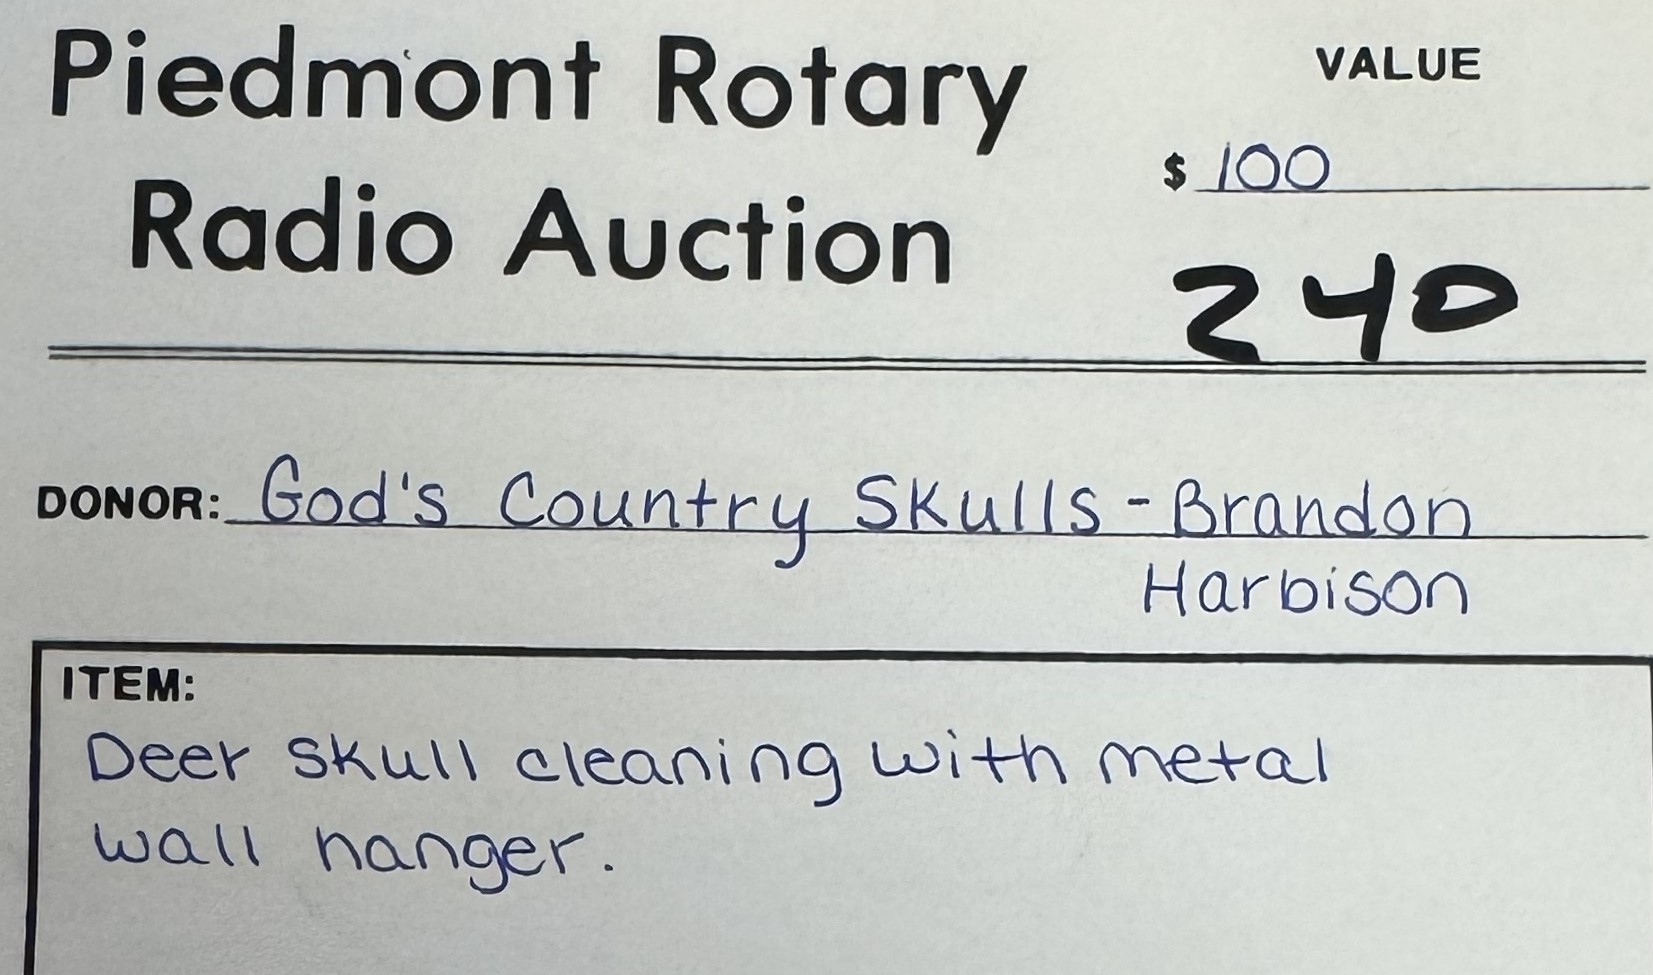 Piedmont Rotary
Radio Auction
VALUE
$ 100
240
DONOR: God's Country Skulls - Brandon
Harbison
ITEM:
Deer skull cleaning with metal
wall hanger.